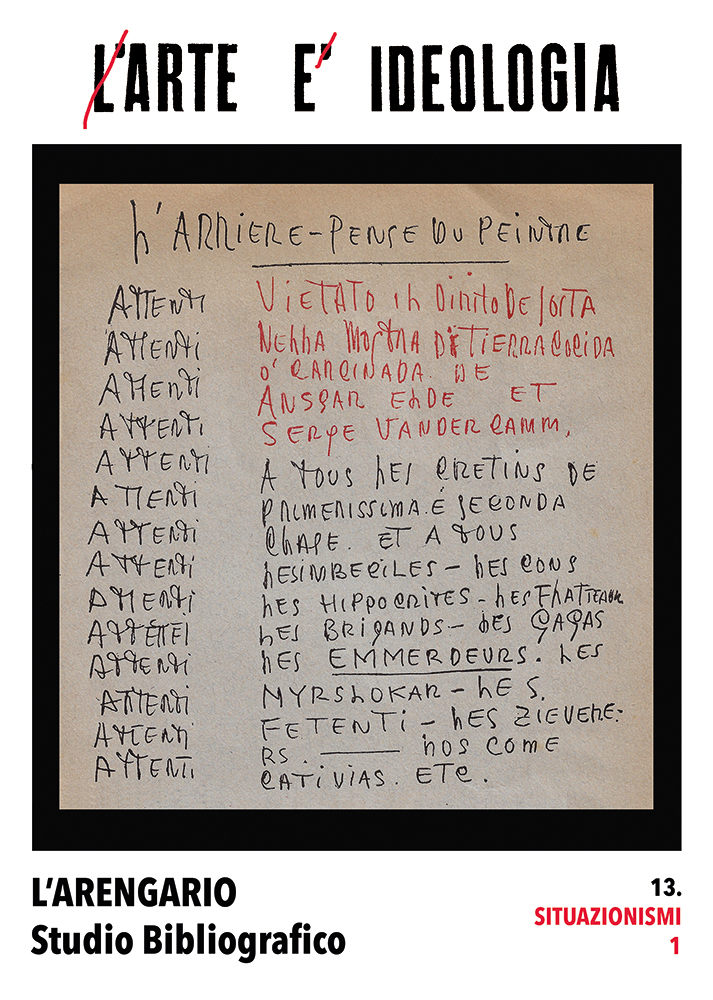 L'ARTE E' IDEOLOGIA
L'ARRIERE-PENSE DU PEINTRE
ATTENTI
ATTENTI
ATTENTI
ATTENTI
ATTENTI
ATTENTI
ATTENTI
ATTENTI
ATTENTI
ATTETEI
ATTENTI
ATTENTI
ATTENTI
ATTENTI
VIETATO IL DIRITO DE SORTA
NELLA MOSTRA DI TIERRA COCIDA
O' CARCINADA. DE
ANSGAR ELDE ET
SERGE VANDERCAMM,
A TOUS LES CRETINS DE
PRIMERISSIMA. E SECONDA
CLASE. ET A TOUS
LES IMBECILES – LES CONS
LES HIPPOCRITES – LES
LES BRIGANDS – LES GAGAS
LES EMMERDEURS. LES
MYRSLOKAR – LES.
FETENTI – LES ZIEVERE-
RS. —— NOS COME
CATIVIAS. ETC.
L'ARENGARIO
Studio Bibliografico
13.
SITUAZIONISMI
1